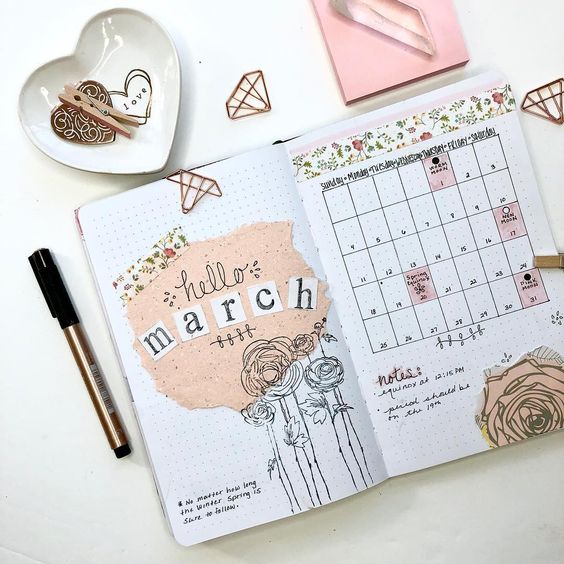 love
hello
march
* No matter how long
the winter Spring is
sure to follow.
Sunday • Monday • Tuesday • Wednesday • Thursday • Friday • Saturday
WORM
MOON
1 2 3
4 5 6 7 8 9 10
NEW
MOON
11 12 13 14 15 16 17
Spring
Equinox
18 19 20 21 22 23 24
MOON
25 26 27 28 29 30 31
notes:
equinox at 12:15 PM
• period should be
on the 19th